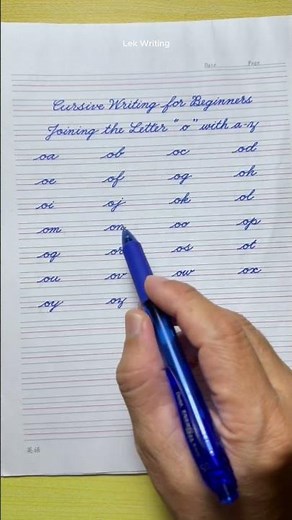 Lek Writing
Date Page
Cursive Writing for Beginners
Joining the Letter "o" with a-z
oa ob oc od
oe of og oh
oi oj ok ol
om on oo op
oq or os ot
ou ov ow ox
oy oz
英语